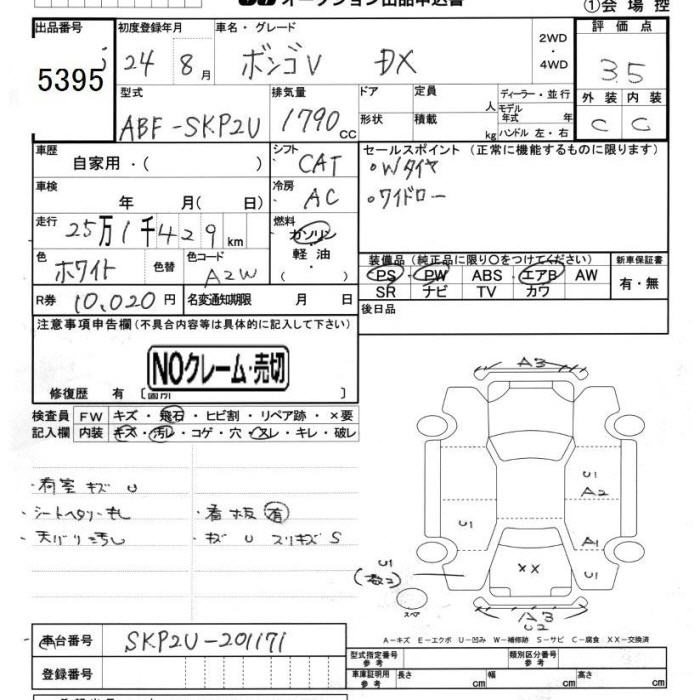 オークション出品申込書
①会場控
出品番号
5395
初度登録年月
24 8月
車名・グレード
ボンゴV DX
2WD
・
4WD
評価点
3.5
外装 内装
C C
型式
ABF-SKP2U
排気量
1790cc
ドア
形状
定員 人
積載 kg
ディーラー・並行
モデル年式 年
ハンドル 左・右
車歴
自家用・( )
シフト
CAT
セールスポイント(正常に機能するものに限ります)
。Wタイヤ
。ワイドロー
車検
年 月( 日)
冷房
AC
走行
25万1千429km
燃料
ガソリン
・
軽油
・
( )
色
ホワイト
色替
色コード
A2W
装備品(純正品に限り○をつけてください)
PS・PW ABS・エアB AW
SR ナビ TV カワ
新車保証書
有・無
R券 10,020円
名変通知期限 月 日
後日品
注意事項申告欄(不具合内容等は具体的に記入して下さい)
NOクレーム・売切
修復歴 有〔箇所 〕
検査員
記入欄
FW キズ・飛石・ヒビ割・リペア跡・×要
内装 キズ・汚レ・コゲ・穴・スレ・キレ・破レ
・荷室 キズ U
・シートヘタリ
・看板 有
・天バリ汚し
・キズ U スリキズ S
A3
U1
A2
U1
A1
U1
U1
××
A3
C2
スペア
A-キズ E-エクボ U-凹み W-補修跡 S-サビ C-腐食 XX-交換済
車台番号
SKP2U-201171
登録番号
型式指定番号
参考
類別区分番号
参考
車庫証明用
参考
長さ cm
幅 cm
高さ cm